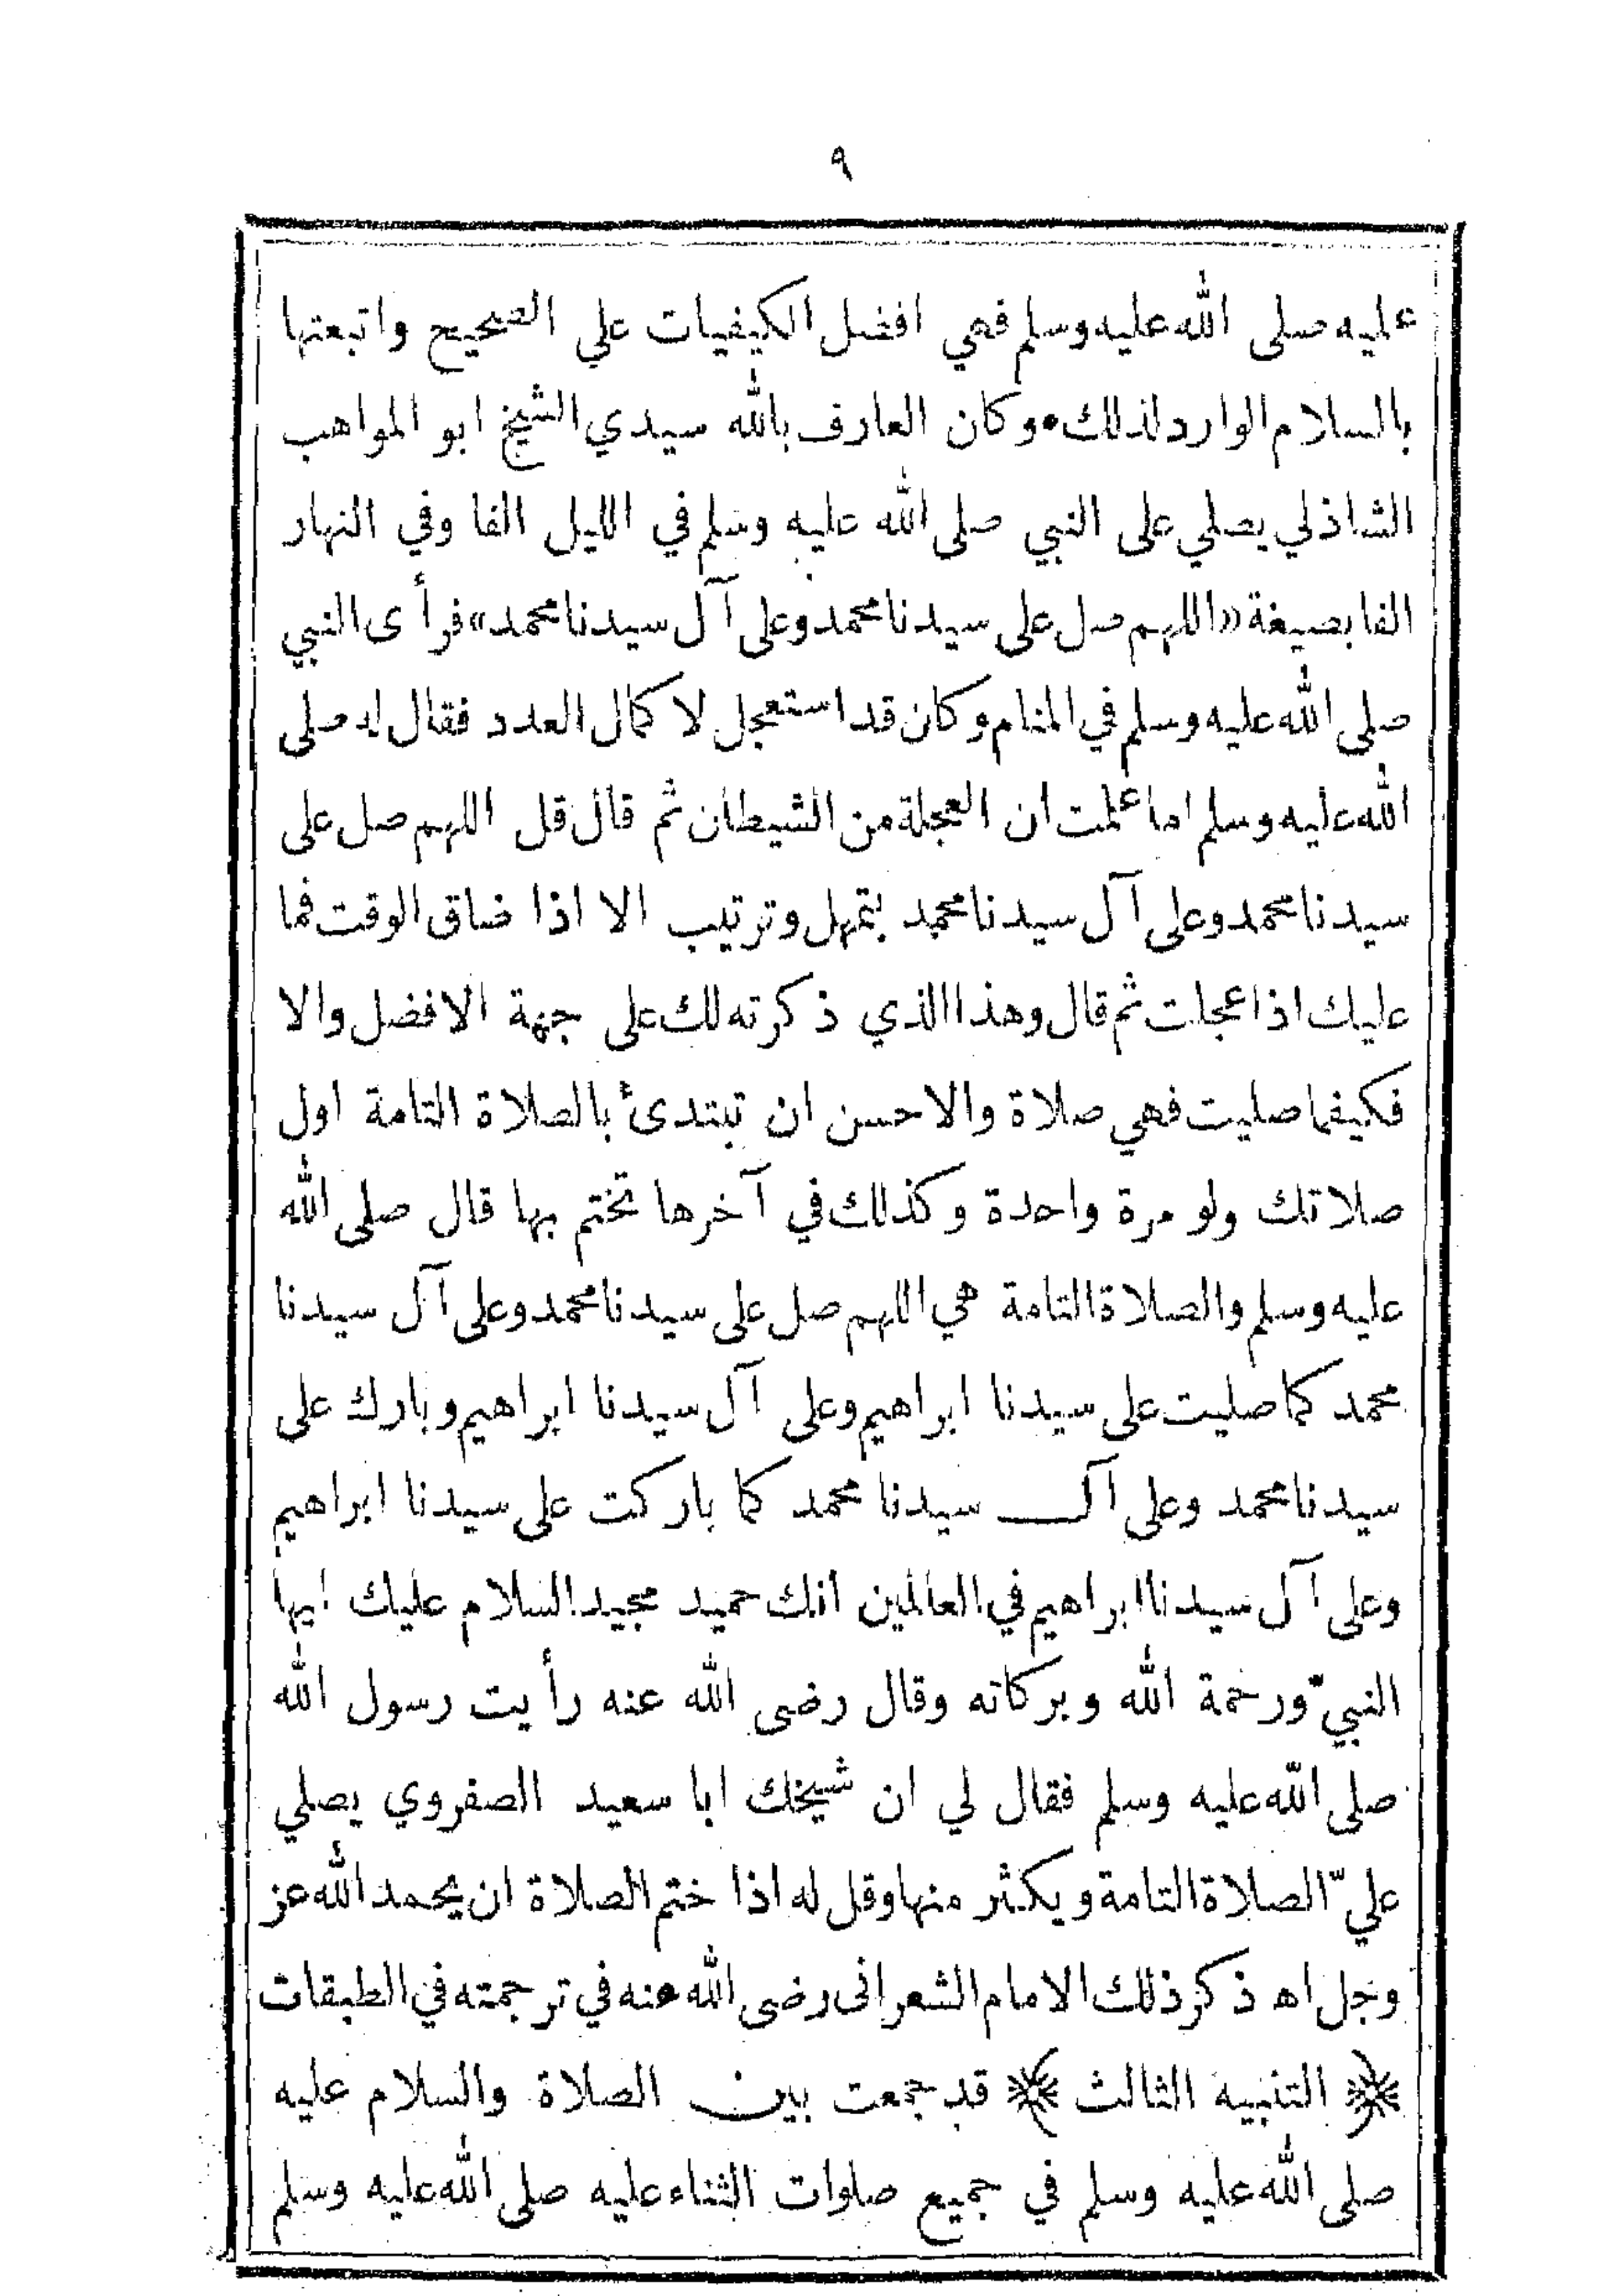 ٩
عليه صلى الله عليه وسلم فهي افضل الكيفيات علي الصحيح واتبعتها
بالسلام الوارد لذلك • وكان العارف بالله سيدي الشيخ ابو المواهب
الشاذلي يصلي على النبي صلى الله عليه وسلم في الليل الفا وفي النهار
الفا بصيغة «اللهم صل على سيدنا محمد وعلى آل سيدنا محمد» فرأى النبي
صلى الله عليه وسلم في المنام وكان قد استعجل لا كمال العدد فقال له صلى
الله عليه وسلم اما علمت ان العجلة من الشيطان ثم قال قل اللهم صل على
سيدنا محمد وعلى آل سيدنا محمد بتمهل وترتيب الا اذا ضاق الوقت فما
عليك اذا عجلت ثم قال وهذا الذي ذكرته لك على جهة الافضل والا
فكيفما صليت فهي صلاة والاحسن ان تبتدئ بالصلاة التامة اول
صلاتك ولو مرة واحدة وكذلك في آخرها تختم بها قال صلى الله
عليه وسلم والصلاة التامة هي اللهم صل على سيدنا محمد وعلى آل سيدنا
محمد كما صليت على سيدنا ابراهيم وعلى آل سيدنا ابراهيم وبارك على
سيدنا محمد وعلى آل سيدنا محمد كما باركت على سيدنا ابراهيم
وعلى آل سيدنا ابراهيم في العالمين انك حميد مجيد السلام عليك ايها
النبيّ ورحمة الله وبركاته وقال رضى الله عنه رأيت رسول الله
صلى الله عليه وسلم فقال لي ان شيخك ابا سعيد الصفروي يصلي
عليّ الصلاة التامة ويكثر منها وقل له اذا ختم الصلاة ان يحمد الله عز
وجل اه ذكر ذلك الامام الشعرانى رضى الله عنه في ترجمته في الطبقات
﴿ التنبيه الثالث ﴾ قد جمعت بين الصلاة والسلام عليه
صلى الله عليه وسلم في جميع صلوات الثناء عليه صلى الله عليه وسلم